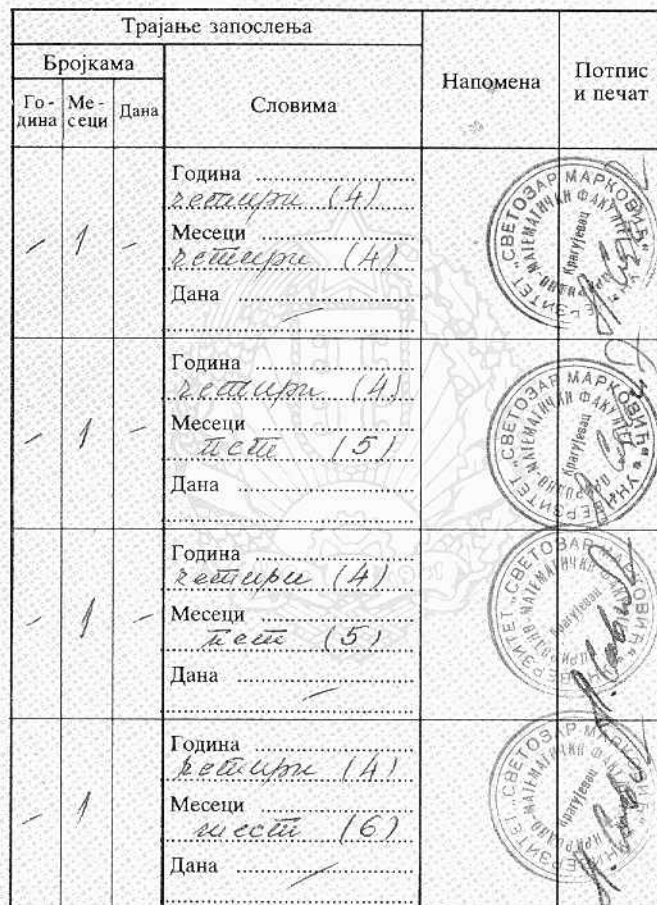 Трајање запослења
Бројкама
Словима
Напомена
Потпис и печат
Го-дина
Ме-сеци
Дана
/ 1 –
Година
четири (4)
Месеци
четири (4)
Дана
/
УНИВЕРЗИТЕТ „СВЕТОЗАР МАРКОВИЋ“
ПРИРОДНО-МАТЕМАТИЧКИ ФАКУЛТЕТ
Крагујевац
– 1 –
Година
четири (4)
Месеци
пет (5)
Дана
УНИВЕРЗИТЕТ „СВЕТОЗАР МАРКОВИЋ“
ПРИРОДНО-МАТЕМАТИЧКИ ФАКУЛТЕТ
Крагујевац
/ 1 –
Година
четири (4)
Месеци
пет (5)
Дана
/
УНИВЕРЗИТЕТ „СВЕТОЗАР МАРКОВИЋ“
ПРИРОДНО-МАТЕМАТИЧКИ ФАКУЛТЕТ
Крагујевац
– 1
Година
четири (4)
Месеци
шест (6)
Дана
/
УНИВЕРЗИТЕТ „СВЕТОЗАР МАРКОВИЋ“
ПРИРОДНО-МАТЕМАТИЧКИ ФАКУЛТЕТ
Крагујевац